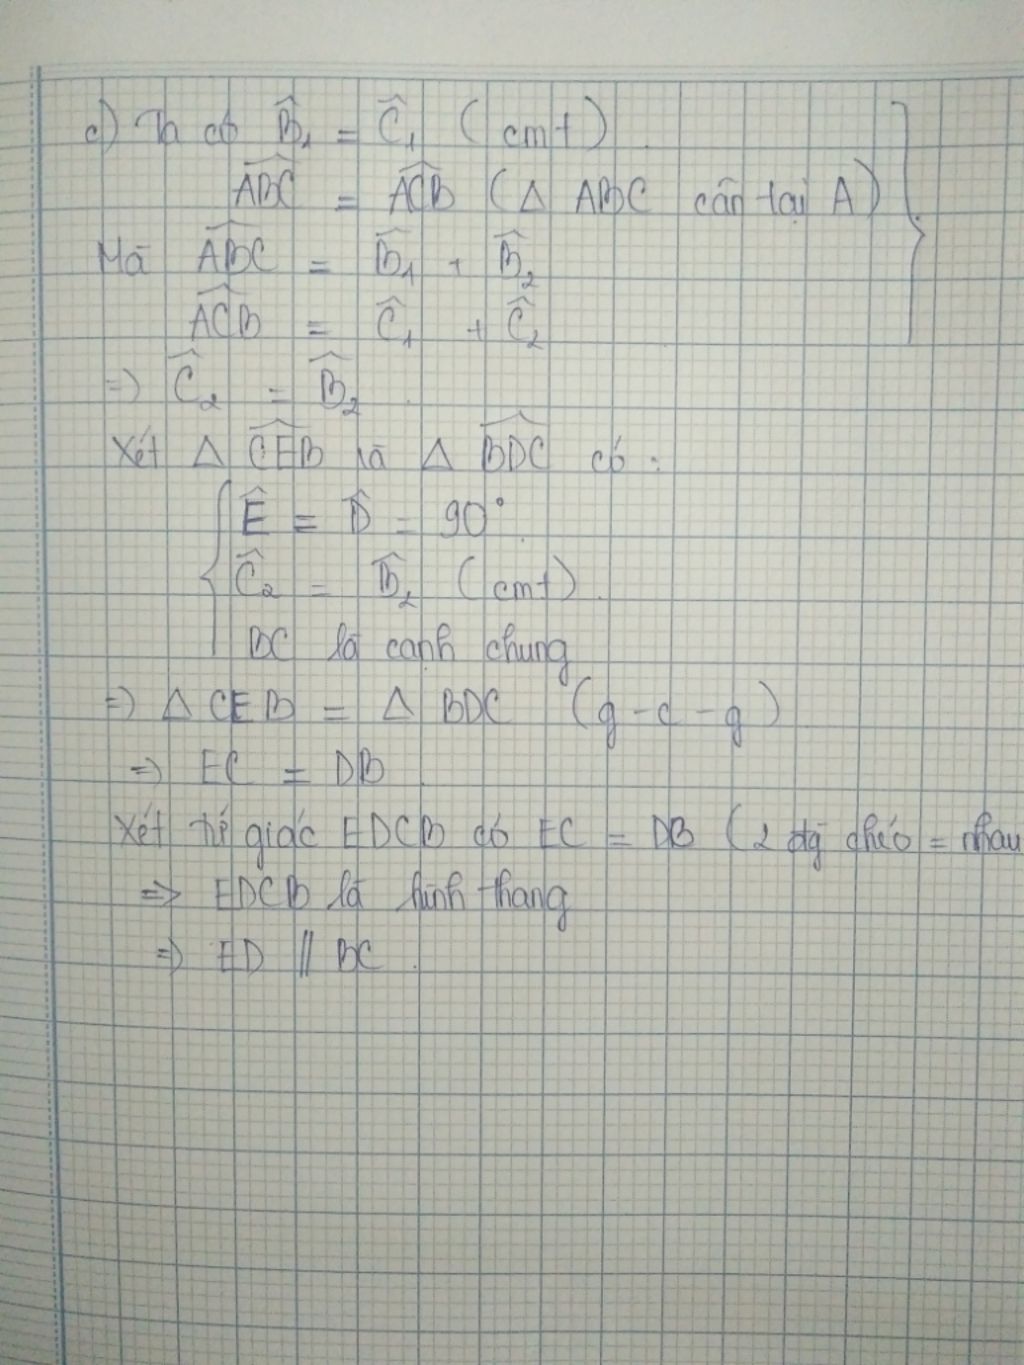 c) Ta có B̂₁ = Ĉ₁ (cmt).
ABC = ACB (Δ ABC cân tại A)
Mà ABC = B̂₁ + B̂₂
ACB = Ĉ₁ + Ĉ₂
=> Ĉ₂ = B̂₂.
Xét Δ CEB và Δ BDC có:
Ê = D̂ = 90°
Ĉ₂ = B̂₂ (cmt).
BC là cạnh chung
=> Δ CEB = Δ BDC (g-c-g)
=> EC = DB.
Xét tứ giác EDCB có EC = DB (2 đg chéo = nhau
=> EDCB là hình thang
=> ED // BC.